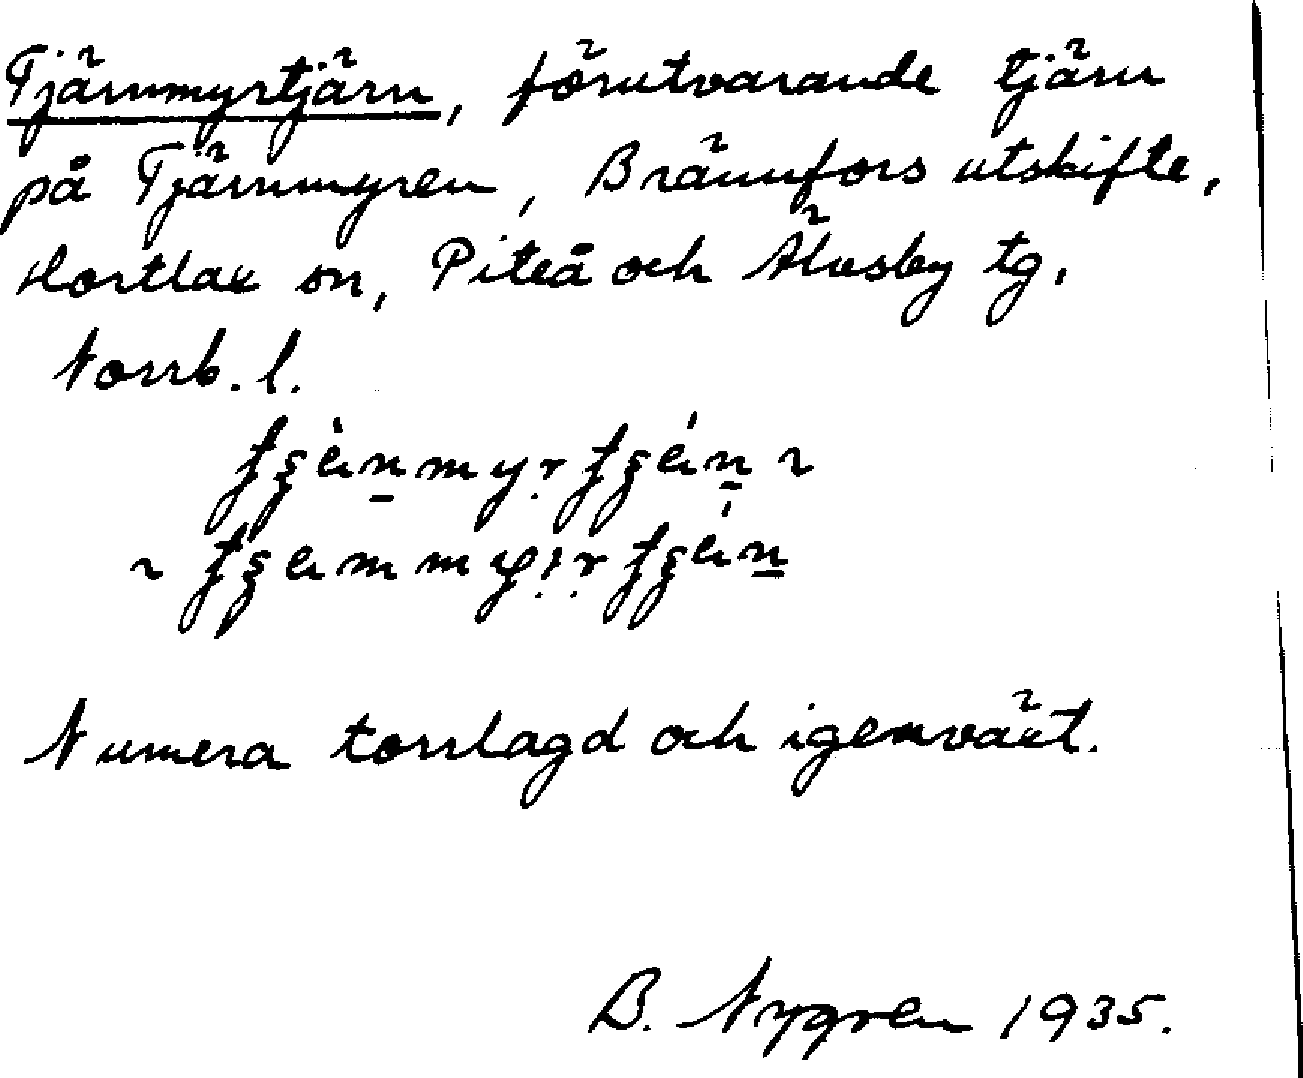 Tjärnmyrtjärn, förutvarande tjärn
på Tjärnmyren, Brännfors utskifte,
Hortlax sn, Piteå och Älvsby tg,
Norrb. l.
Numera torrlagd och igenväxt.
B. Nygren 1935.